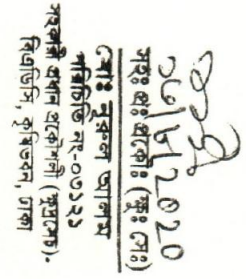 ১৬/২/2020
সহঃ প্রঃ প্রকৌঃ (ক্ষুঃ সেঃ)
মোঃ নুরুল আলম
পরিচিতি নং-০৭১২১
সহকারী প্রধান প্রকৌশলী (ক্ষুদ্রসেচ).
বিএডিসি, কৃষিভবন, ঢাকা